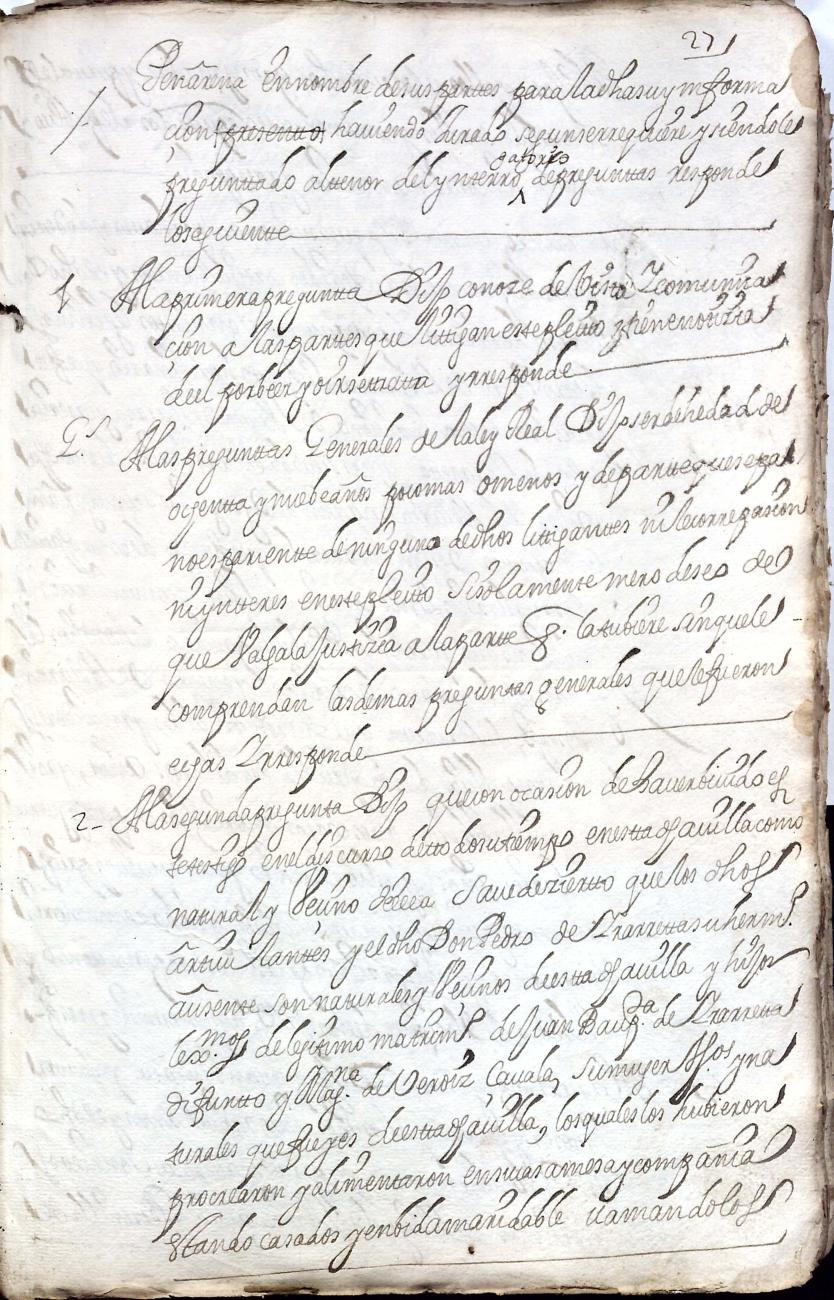 27
Peñarena En nombre de sus partes para la dha su ynforma
cion presento haviendo Jurado segun se rrequiere y siendole
preguntado al tenor del ynterro gatorio de preguntas responde
lo siguiente
1 A la primera pregunta Dijo conoze de Vista Y comunica
cion a las partes que littigan este pleito y tiene notizia
de el por ber y oir se tratta y rresponde
Gs A las preguntas Generales de la ley Real Dijo ser de hedad de
ochenta y nuebe años poco mas o menos y de parte que se pa
no es pariente de ninguno de dhos littigantes ni le corre pasion
ni ynteres en este pleito si solamente mero deseo de
que Valga la Justizia a la parte q. la tubiere sin que le
comprendan las demas preguntas generales que le fueron
echas Y rresponde
2 A la segunda pregunta Dijo que con ocasion de haver bivido es
te testigo en el discurso de todo su tiempo en esta dha villa como
natural y Vecino de ella save de zierto que los dhos
articulantes y el dho Don Pedro de Yrarreta su herm.o
ausente son naturales y Vecinos de esta dha villa y hijos
lex.mos de legitimo matrim.o de Juan Baup.ta de Yrarreta
difunto y Mag.na de Verdiz Cavala, su mujer Vs.os y na
turales que fueron de esta dha villa, los quales los hubieron
procrearon y alimentaron en su casa mesa y compañia
estando casados y en bida maridable llamandolos